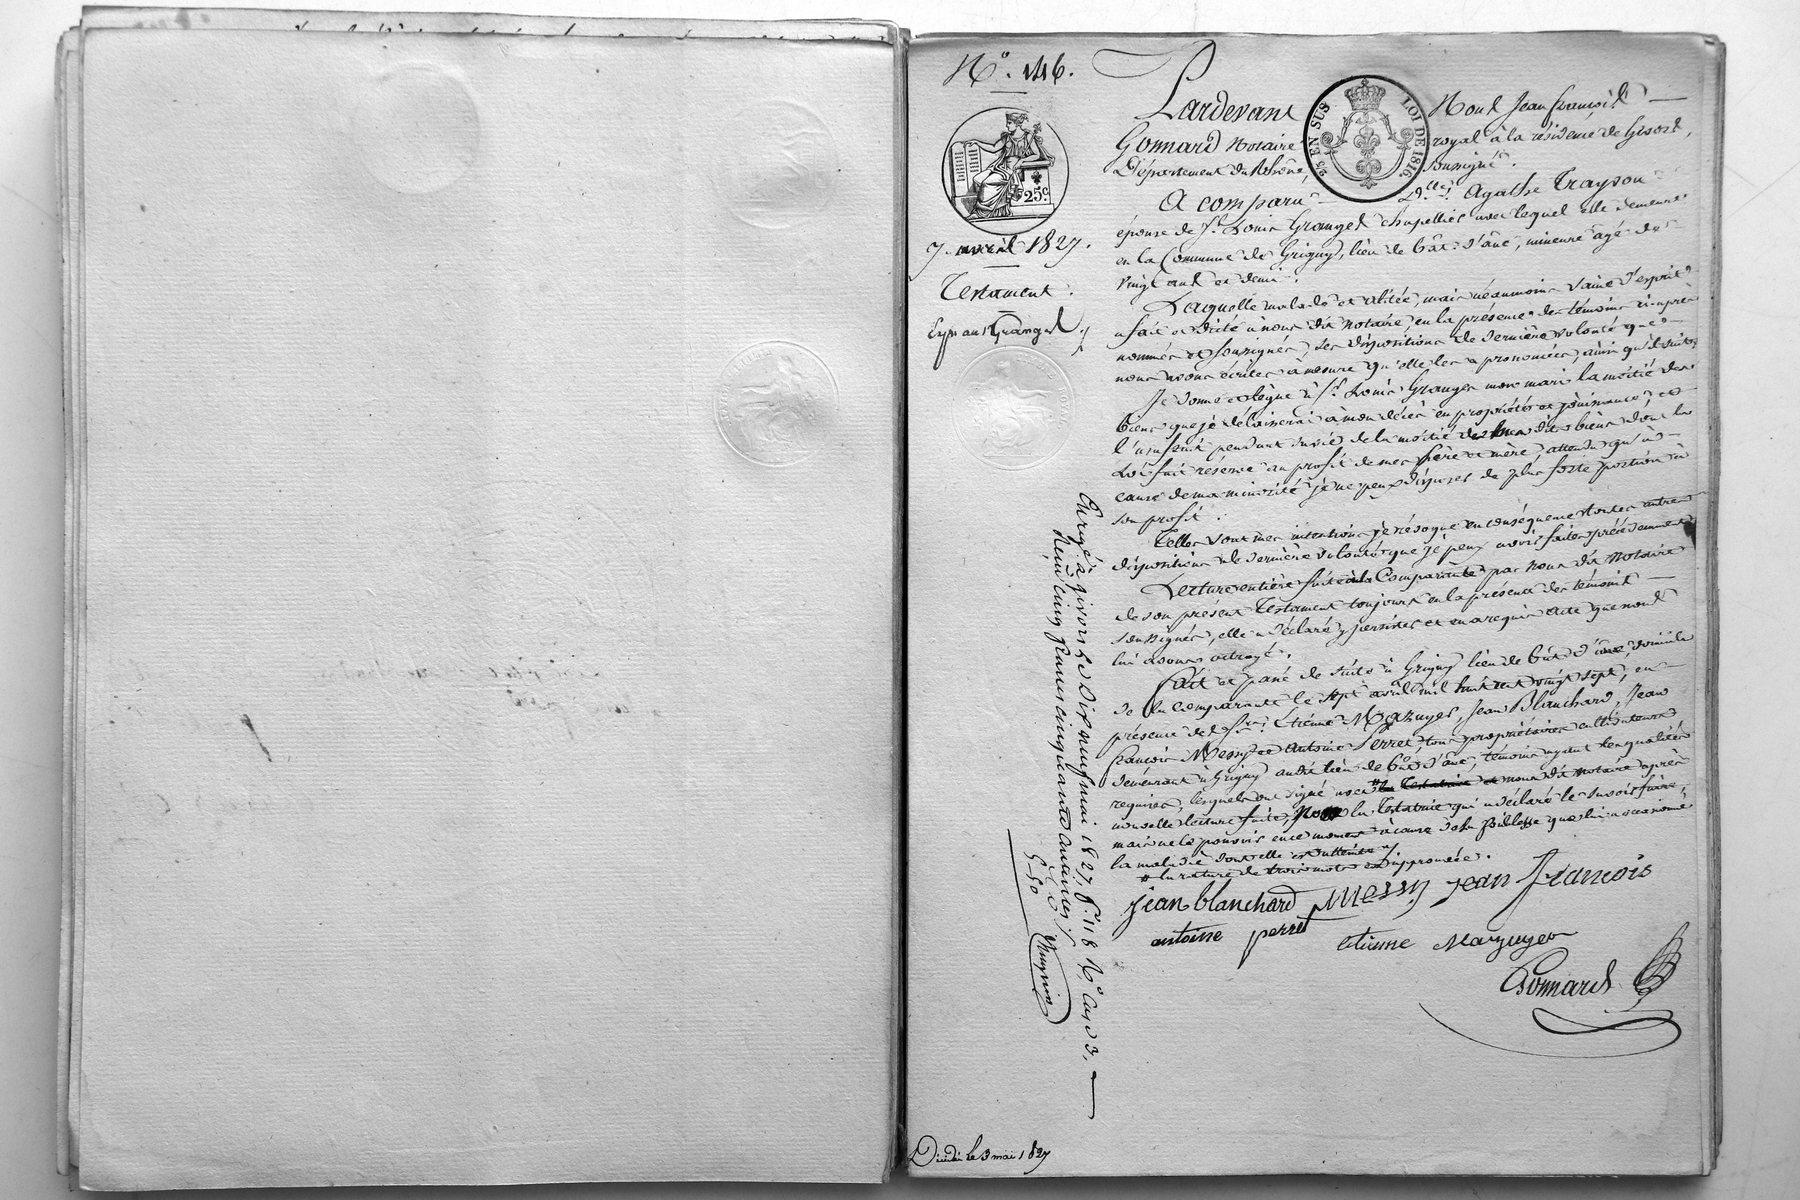 N.º 146.
25.c
7. avril 1827.
Testament.
Pardevant Nous Jean François
2/5 EN SUS
LOI DE 1816.
Gonnard Notaire royal à la résidence de Givors,
Département du Rhône, soussigné.
A comparu D.lle Agathe Trayson
épouse de S.r Louis Granger chapellier avec lequel elle demeure
en la Commune de Grigny, lieu de Bât-d'âne, mineure agé de
vingt ans et demi.
Laquelle malade et alitée, mais néanmoins saine d'esprit
a fait et dicté à nous dit notaire, en la présence des témoins ci-après
nommés et soussignés, ses dispositions de dernière volonté que
nous avons écrites à mesure qu'elle les a prononcées, ainsi qu'il suit:
Je donne et lègue à S.r Louis Granger mon mari la moitié des
biens que je délaisserai à mon décès en propriété et jouissance, et
l'usufruit pendant sa vie de la moitié des dits biens dont la
Loi fait réserve au profit de mes père et mère, attendu qu'à
cause de ma minorité je ne peux disposer de plus forte portion à
son profit.
Telles sont mes intentions, je révoque en conséquence toutes autres
dispositions de dernière volonté que je peux avoir faites précédemment
Lecture entière faite à la Comparante par nous dit Notaire
de son présent Testament toujours en la présence des témoins
soussignés, elle a déclaré y persister et en a requis acte que nous
lui avons octroyé.
Fait et passé de suite à Grigny lieu de bât d'âne, domicile
de la comparante le sept avril mil huit cent vingt sept, en
présence de S.rs Etienne Mazuyer, Jean Blanchard, Jean
François Messy et Antoine Perret, tous propriétaires cultivateurs
demeurant à Grigny audit lieu de bât d'âne, témoins ayant les qualités
requises, lesquels ont signé avec la Testatrice et nous dit notaire après
nouvelle lecture faite, non la Testatrice qui a déclaré le savoir faire,
mais ne le pouvoir en ce moment à cause de la faiblesse que lui a occasionné
la maladie dont elle est atteinte
la rature de trois mots est approuvée.
jean blanchard Messy jean françois
antoine perret etienne Mazuyer
Gonnard
Enrégé à givors le dix neuf mai 1827. f.º 118 V.º cases 3.
Reçu cinq francs cinquante centimes
5-50
le 3 mai 1827